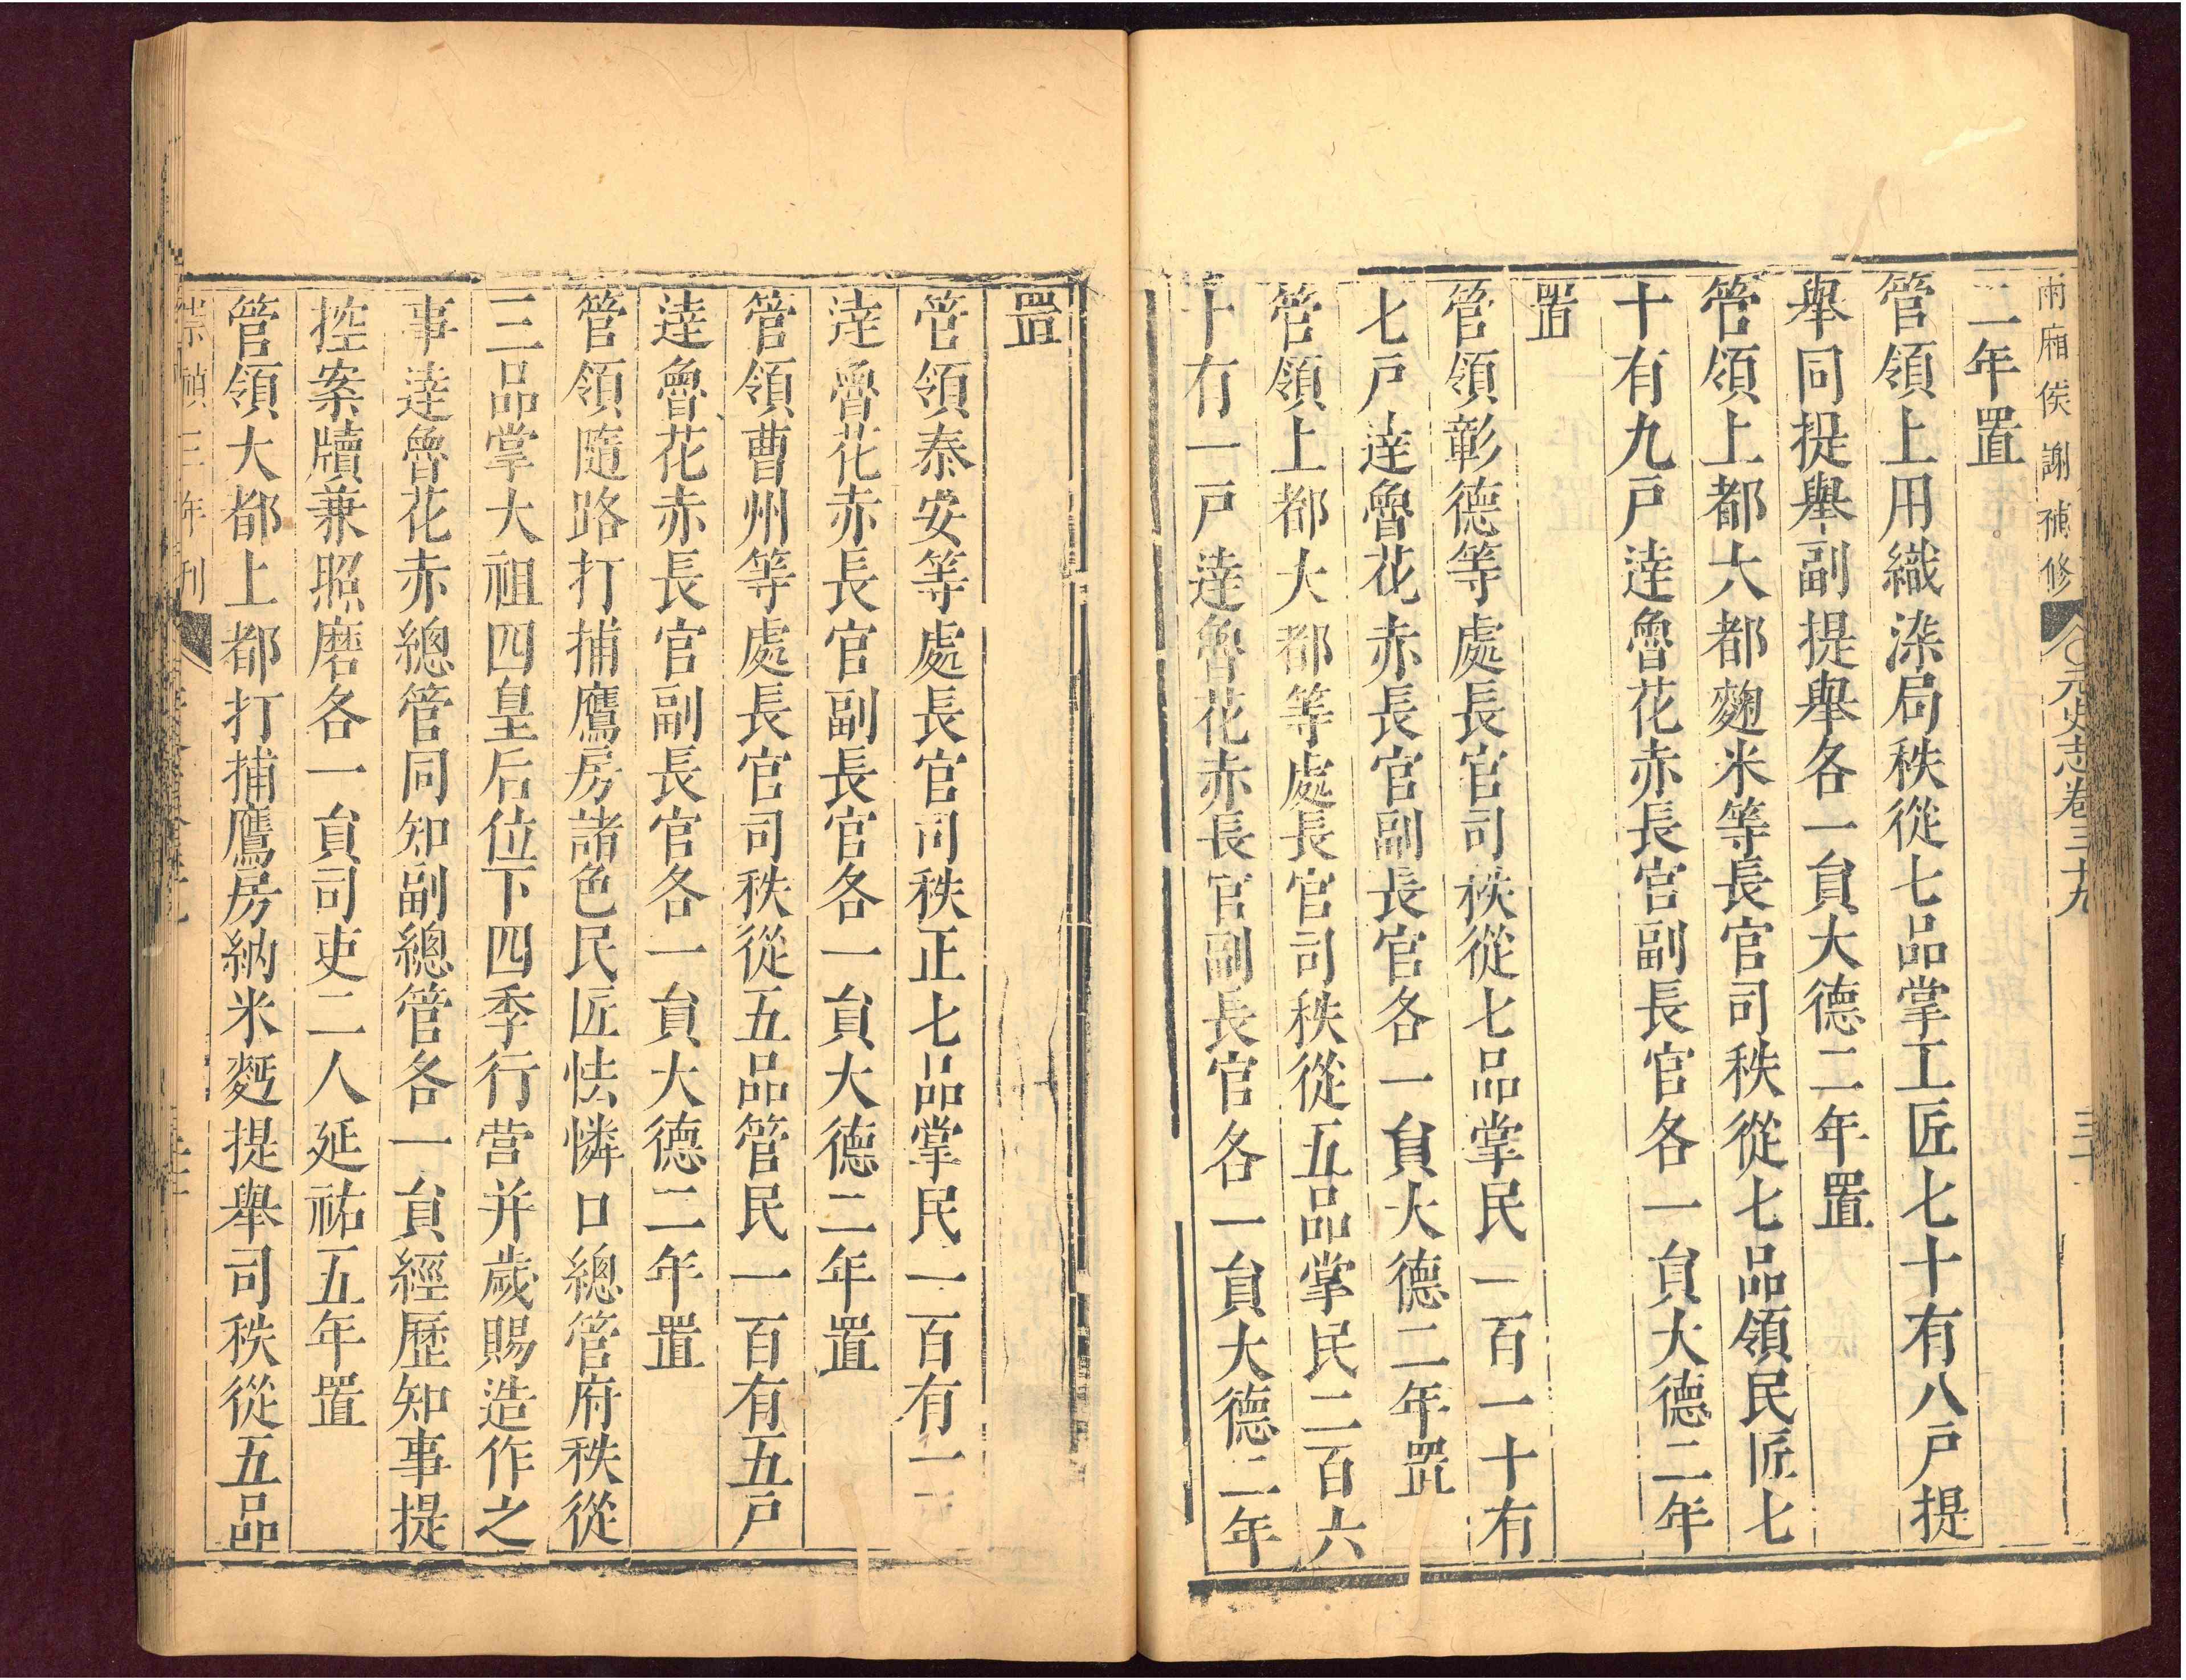 雨廂俟謝補修
元史志卷三十九
三十
二年置
管領上用織染局秩從七品掌工匠七十有八戸提
舉同提舉副提舉各一貟大德二年置
管領上都大都麹米等長官司秩從七品領民匠七
十有九戸達魯花赤長官副長官各一貟大德二年
置
管領彰德等處長官司秩從七品掌民一百一十有
七戸達魯花赤長官副長官各一貟大德二年置
管領上都大都等處長官司秩從五品掌民二百六
十有一戸達魯花赤長官副長官各一貟大德二年
置
管領泰安等處長官司秩正七品掌民一百有一
達魯花赤長官副長官各一貟大德二年置
管領曹州等處長官司秩從五品管民一百有五戸
達魯花赤長官副長官各一貟大德二年置
管領隨路打捕鷹房諸色民匠怯憐口總管府秩從
三品掌大祖四皇后位下四季行营并歲賜造作之
事達魯花赤總管同知副總管各一貟經歷知事提
控案牘兼照磨各一貟司吏二人延祐五年置
管領大都上都打捕鷹房納米麪提舉司秩從五品
崇禎三年刊